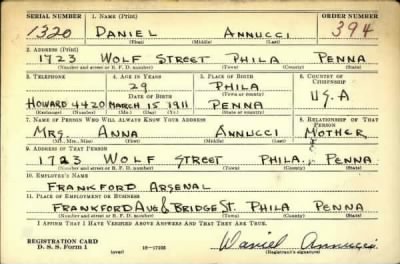 SERIAL NUMBER 1. NAME (Print) ORDER NUMBER
1320 DANIEL ANNUCCI 394
(First) (Middle) (Last)
2. ADDRESS (Print)
1723 WOLF STREET PHILA PENNA
(Number and street or R. F. D. number) (Town) (County) (State)
3. TELEPHONE 4. AGE IN YEARS 5. PLACE OF BIRTH 6. COUNTRY OF CITIZENSHIP
29 PHILA
DATE OF BIRTH (Town or county) U.S.A
HOWARD 4420 MARCH 15 1911 PENNA
(Exchange) (Number) (Mo.) (Day) (Yr.) (State or country)
7. NAME OF PERSON WHO WILL ALWAYS KNOW YOUR ADDRESS 8. RELATIONSHIP OF THAT PERSON
MRS. ANNA ANNUCCI MOTHER
(Mr., Mrs., Miss) (First) (Middle) (Last)
9. ADDRESS OF THAT PERSON
1723 WOLF STREET PHILA. PENNA
(Number and street or R. F. D. number) (Town) (County) (State)
10. EMPLOYER'S NAME
FRANKFORD ARSENAL
11. PLACE OF EMPLOYMENT OR BUSINESS
FRANKFORD AVE & BRIDGE ST. PHILA PENNA
(Number and street or R. F. D. number) (Town) (County) (State)
I AFFIRM THAT I HAVE VERIFIED ABOVE ANSWERS AND THAT THEY ARE TRUE.
REGISTRATION CARD
D. S. S. Form 1 (over) Daniel Annucci
(Registrant's signature)